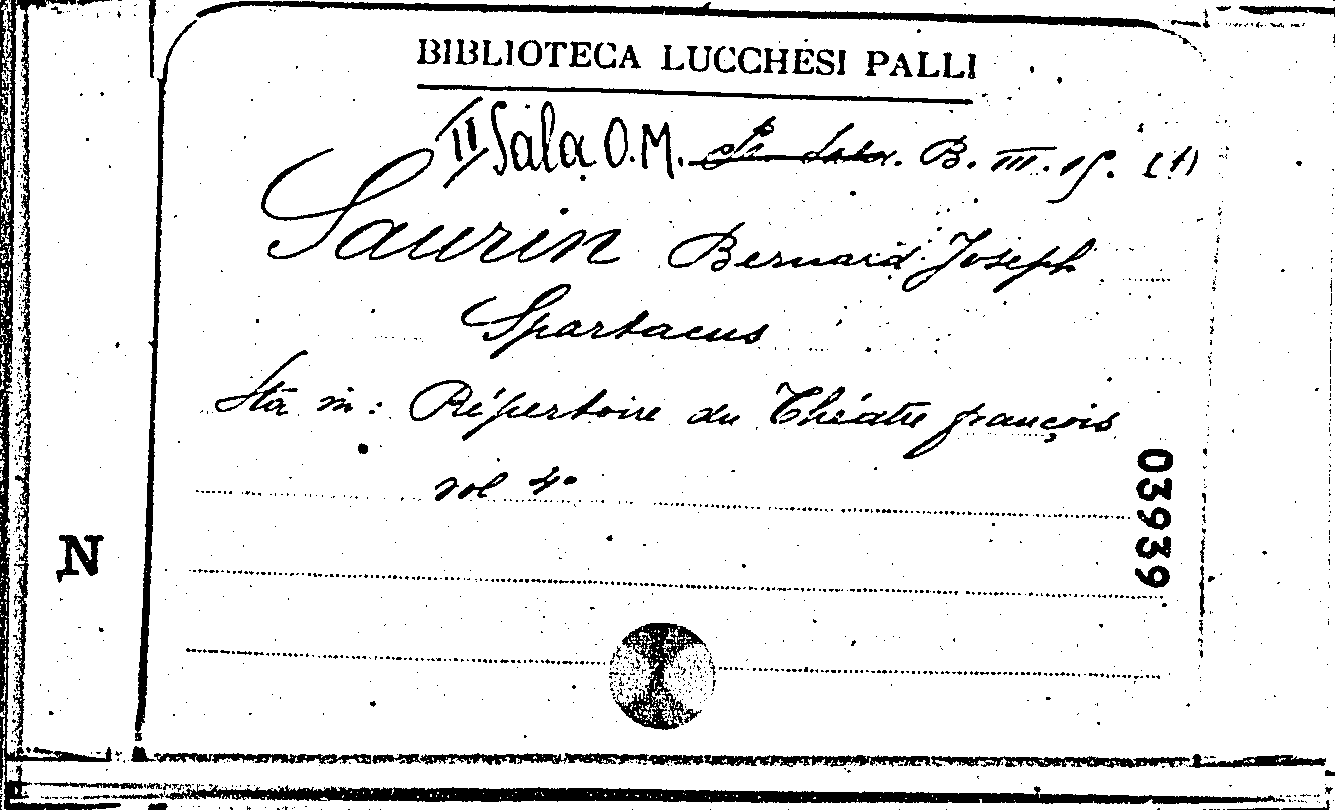 BIBLIOTECA LUCCHESI PALLI
II Sala O.M. B. III. 15. (1)
Saurin Bernard Joseph
Spartacus
Sta in: Répertoire du Théatre françois
vol 4º
03939
N